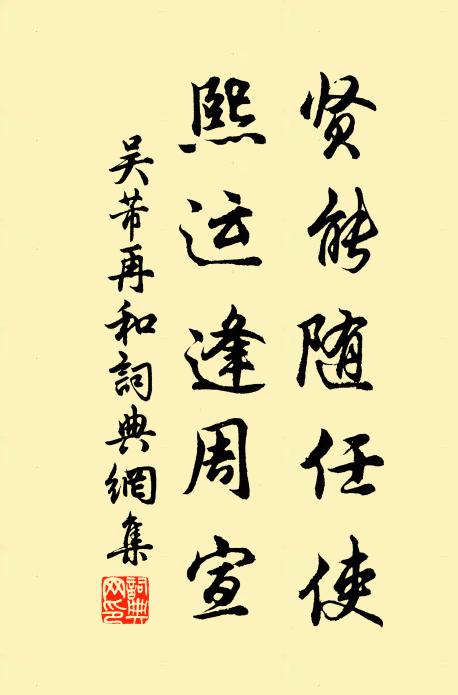 贤能随任使
熙运逢周宣
吴芾再和詞典網集
詞典
网印